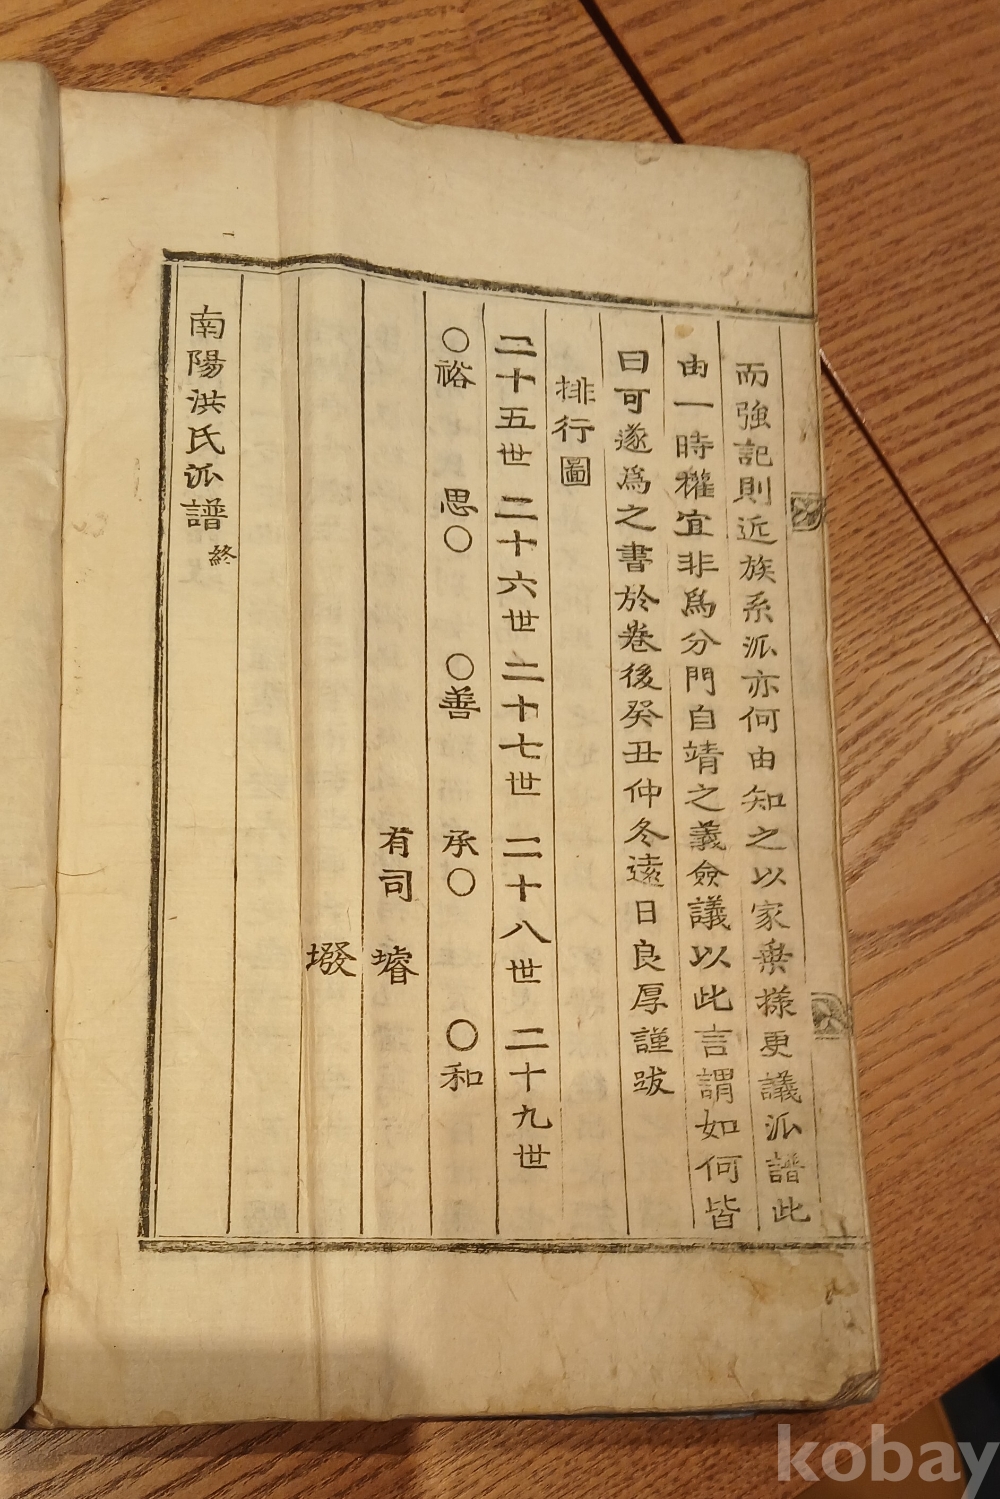 而強記則近族系派亦何由知之以家乗樣更議派譜此
由一時權宜非爲分門自靖之義僉議以此言謂如何皆
曰可遂爲之書於卷後癸丑仲冬遠日良厚謹跋
排行圖
二十五世 二十六世 二十七世 二十八世 二十九世
○裕 思○ ○善 承○ ○和
有司 㙷
墢
南陽洪氏派譜終
kobay